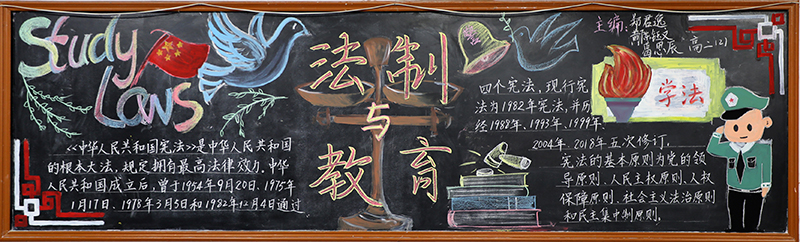 Study
Laws
法制
与
教育
<<中华人民共和国宪法>>是中华人民共和国
的根本大法,规定拥有最高法律效力.中华
人民共和国成立后,曾于1954年9月20日、1975年
1月17日、1978年3月5日和1982年12月4日通过
四个宪法,现行宪
法为1982年宪法,并历
经1988年、1993年、1999年、
2004年、2018年五次修订,
宪法的基本原则为党的领
导原则、人民主权原则、人权
保障原则、社会主义法治原则
和民主集中制原则。
主编:
高二(2)
学法